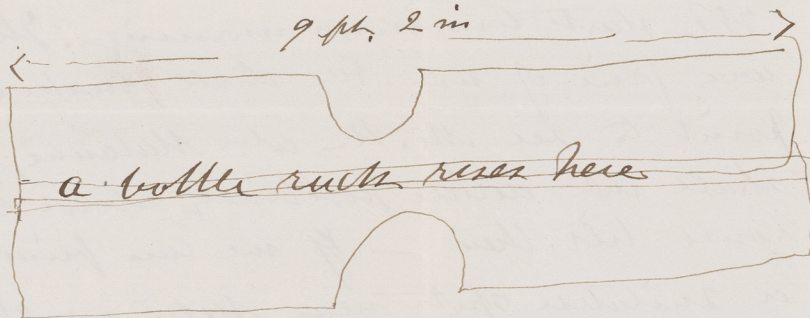 9 ft. 2 in
a bottle rack rises here